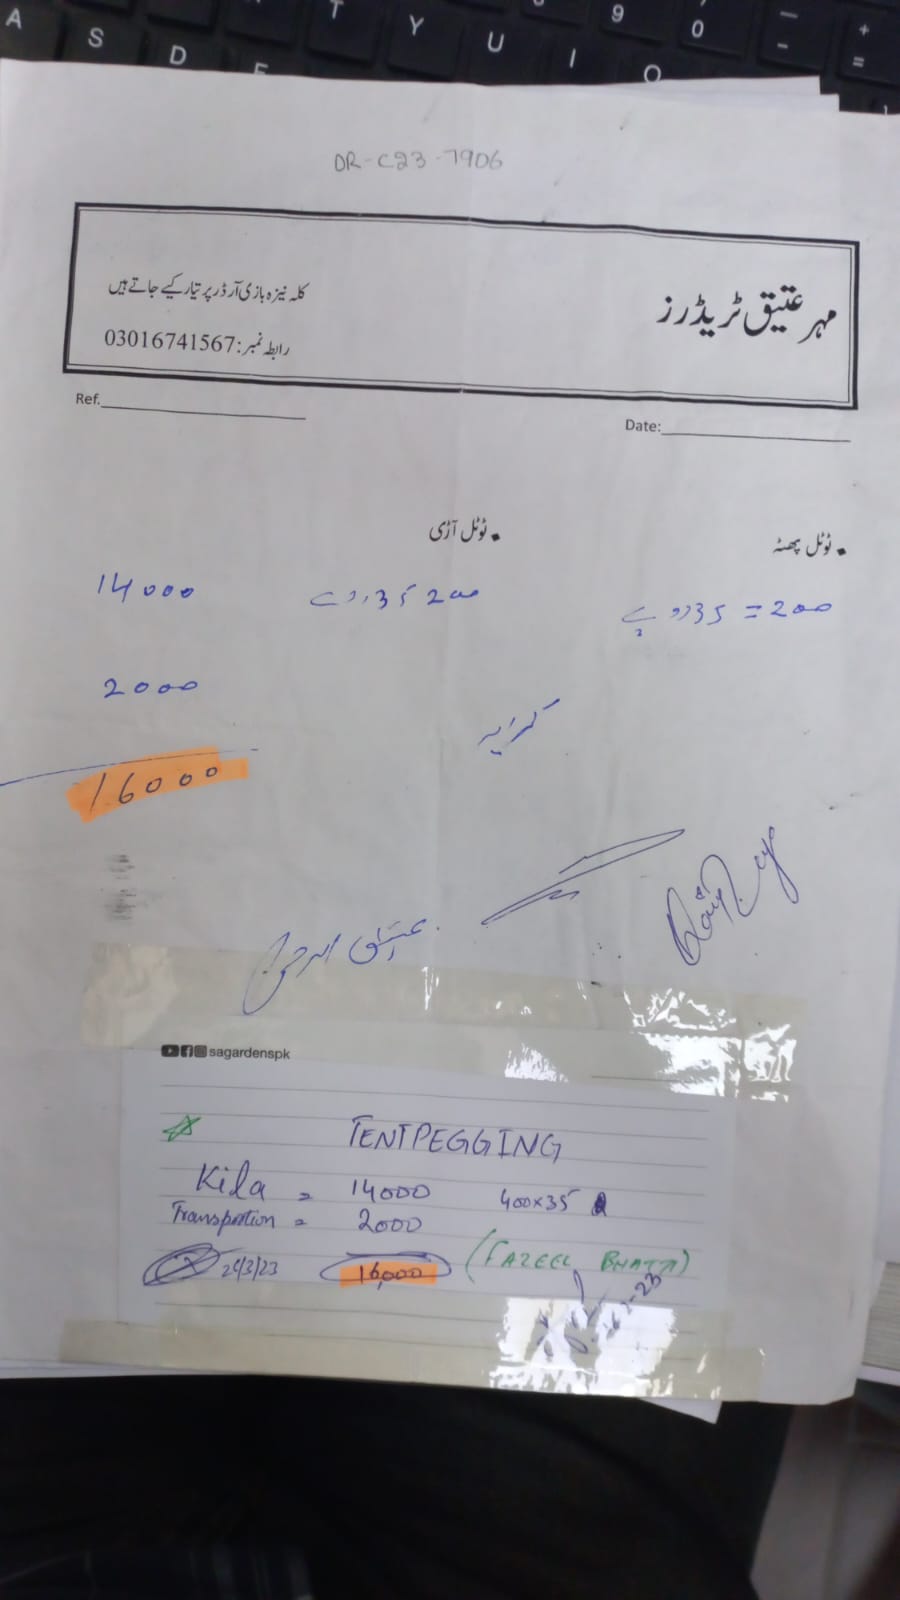 DR-C23-7906
مہر عتیق ٹریڈرز
کلہ نیزہ بازی آرڈر پر تیار کیے جاتے ہیں
رابطہ نمبر: 03016741567
Ref.
Date:
• ٹوٹل پھٹہ
• ٹوٹل آڑی
200 = 35 روپے
200 35 روپے
14000
کرایہ
2000
16000
عتیق الرحمن
sagardenspk
TENTPEGGING
Kila = 14000 400x35
Transportion = 2000
24/3/23 16,000 (FAZEEL BHATTI)